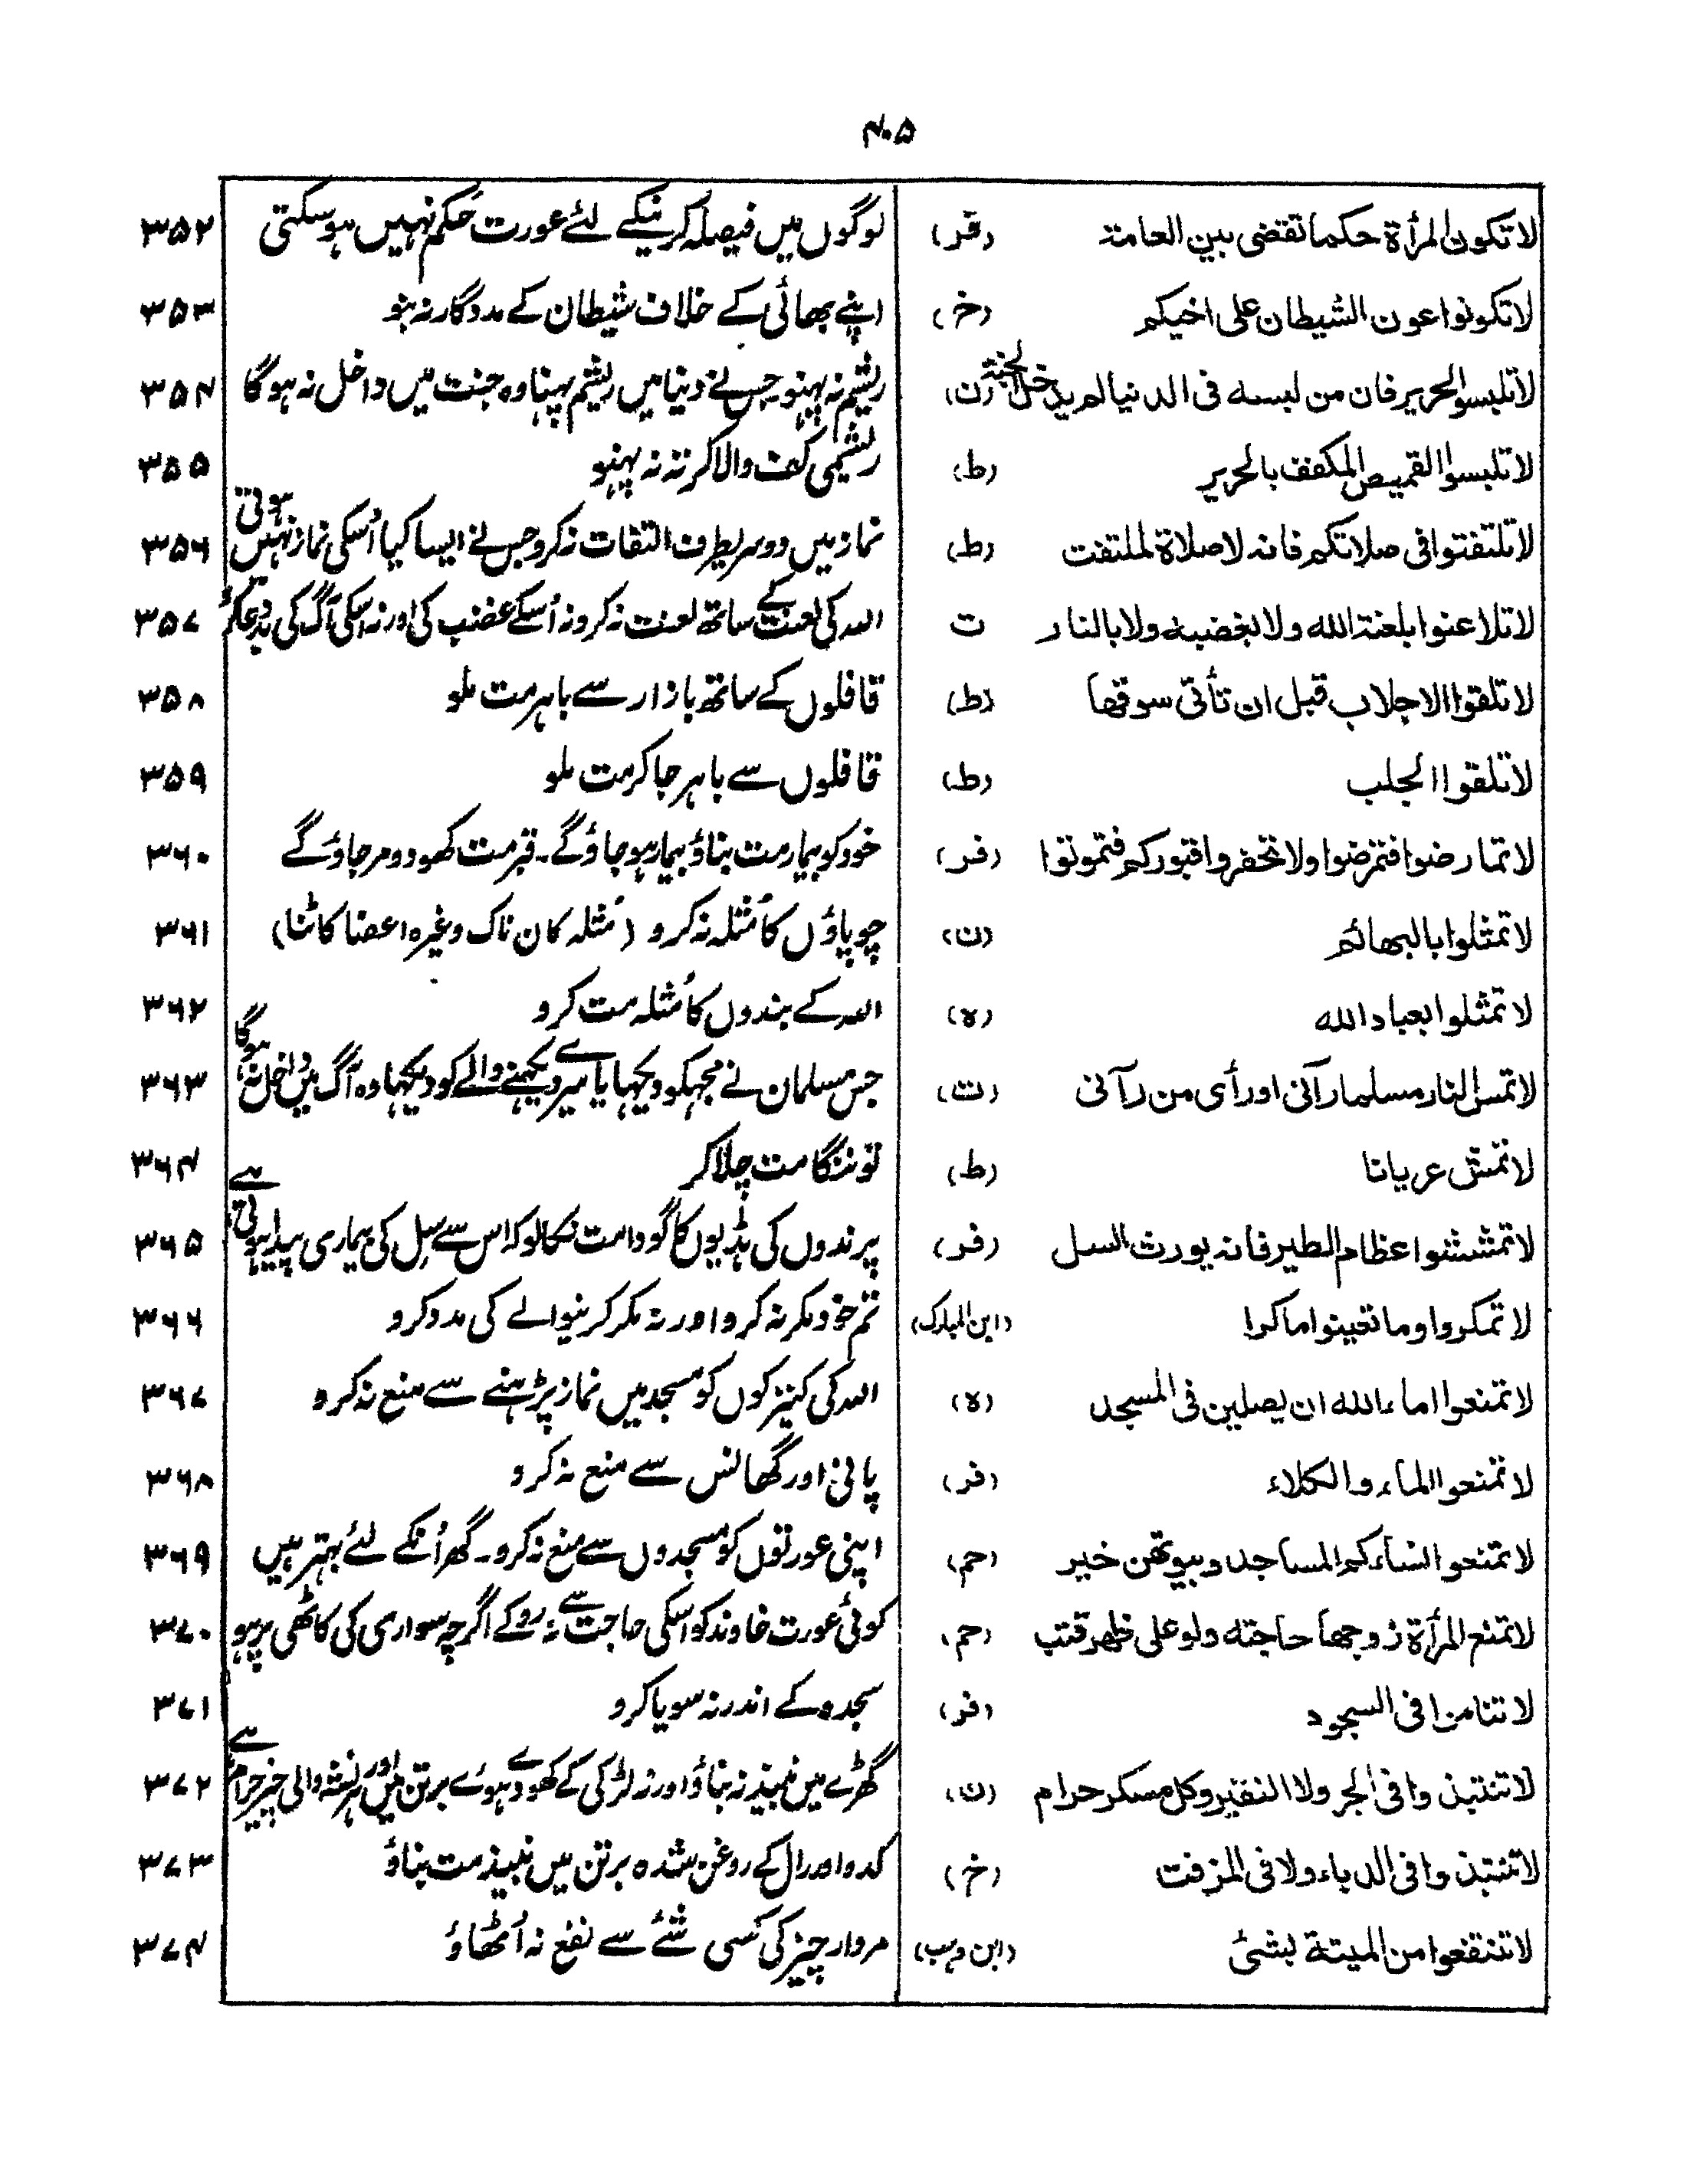 ۴۰۵
لا تكون المرأة حكما تقضى بين العامة (قر) لوگوں میں فیصلہ کرنیکے لئے عورت حَکم نہیں ہوسکتی ۳۵۲
لا تكونوا عون الشيطان على اخيكم (خ) اپنے بھائی کے خلاف شیطان کے مددگار نہ بنو ۳۵۳
لا تلبسوا الحرير فان من لبسه فى الدنيا لم يدخل الجنة (ن) ریشم نہ پہنو جس نے دنیا میں ریشم پہنا وہ جنت میں داخل نہ ہوگا ۳۵۴
لا تلبسوا القميص المكفف بالحرير (ط) ریشمی کف والا کرتہ نہ پہنو ۳۵۵
لا تلتفتوا فى صلاتكم فانه لا صلاة لملتفت (ط) نماز میں دوسریطرف التفات نہ کرو جس نے ایسا کیا اُسکی نماز نہیں ہوتی ۳۵۶
لا تلاعنوا بلعنة الله ولا بغضبه ولا بالنار ت اللہ کی لعنت کے ساتھ لعنت نہ کرو نہ اُسکے غضب کی اور نہ اسکی آگ کی بددعا کرو ۳۵۷
لا تلقوا الاجلاب قبل ان تأتى سوقها (ط) قافلوں کے ساتھ بازار سے باہر مت ملو ۳۵۸
لا تلقوا الجلب (ط) قافلوں سے باہر جاکر مت ملو ۳۵۹
لا تمارضوا فتمرضوا ولا تحفروا قبوركم فتموتوا (فر) خود کو بیمار مت بناؤ بیمار ہو جاؤ گے۔ قبر مت کھودو مر جاؤ گے ۳۶۰
لا تمثلوا بالبهائم (ن) چوپاؤں کا مُثلہ نہ کرو (مُثلہ کان ناک وغیرہ اعضا کاٹنا) ۳۶۱
لا تمثلوا بعباد الله (ہ) اللہ کے بندوں کا مُثلہ مت کرو ۳۶۲
لا تمس النار مسلما رآنى او رأى من رآنى (ت) جس مسلمان نے مجہکو دیکہا یا میرے دیکہنے والے کو دیکہا وہ آگ میں داخل نہ ہوگا ۳۶۳
لا تمش عريانا (ط) تو ننگا مت چلا کر ۳۶۴
لا تمششوا عظام الطير فانه يورث السل (فر) پرندوں کی ہڈیوں کا گودا مت نکالو کہ اس سے سِل کی بیماری پیدا ہوتی ہے ۳۶۵
لا تمكروا وما تعينوا ماكرا (ابن المبارک) تم خود مکر نہ کرو اور نہ مکر کرنیوالے کی مدد کرو ۳۶۶
لا تمنعوا اماء الله ان يصلين فى المسجد (ہ) اللہ کی کنیزکوں کو مسجد میں نماز پڑہنے سے منع نہ کرو ۳۶۷
لا تمنعوا الماء والكلاء (فر) پانی اور گھانس سے منع نہ کرو ۳۶۸
لا تمنعوا النساءكم المساجد وبيوتهن خير (حم) اپنی عورتوں کو مسجدوں سے منع نہ کرو۔ گھر اُنکے لئے بہتر ہیں ۳۶۹
لا تمنع المرأة زوجها حاجته ولو على ظهر قتب (حم) کوئی عورت خاوند کو اسکی حاجت سے نہ روکے اگرچہ سواری کی کاٹھی پر ہو ۳۷۰
لا تنامن فى السجود (فر) سجدہ کے اندر نہ سویا کرو ۳۷۱
لا تنتبذوا فى الجر ولا النقير وكل مسكر حرام (ن) گھڑے میں نبیذ نہ بناؤ اور نہ لڑکی کے کھودے ہوئے برتن میں اور ہر نشہ والی چیز حرام ہے ۳۷۲
لا تنتبذوا فى الدباء ولا فى المزفت (خ) کدو اور رال کے روغن شدہ برتن میں نبیذ مت بناؤ ۳۷۳
لا تنتفعوا من الميتة بشئ (ابن وہب) مردار چیز کی کسی شئے سے نفع نہ اُٹھاؤ ۳۷۴